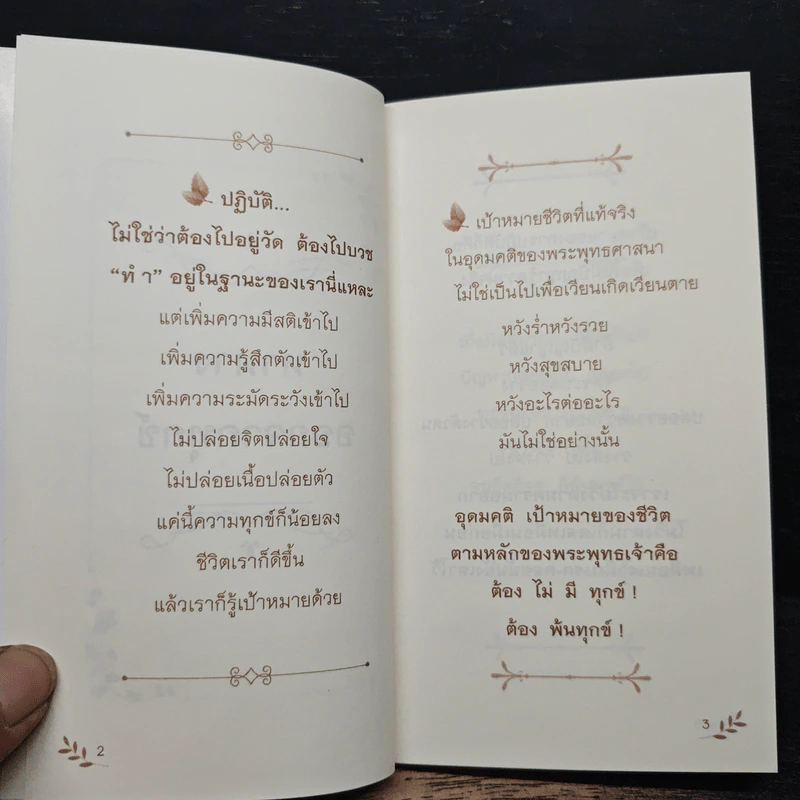 ปฏิบัติ...
ไม่ใช่ว่าต้องไปอยู่วัด ต้องไปบวช
“ทำ” อยู่ในฐานะของเรานี่แหละ
แต่เพิ่มความมีสติเข้าไป
เพิ่มความรู้สึกตัวเข้าไป
เพิ่มความระมัดระวังเข้าไป
ไม่ปล่อยจิตปล่อยใจ
ไม่ปล่อยเนื้อปล่อยตัว
แค่นี้ความทุกข์ก็น้อยลง
ชีวิตเราก็ดีขึ้น
แล้วเราก็รู้เป้าหมายด้วย
2
เป้าหมายชีวิตที่แท้จริง
ในอุดมคติของพระพุทธศาสนา
ไม่ใช่เป็นไปเพื่อเวียนเกิดเวียนตาย
หวังร่ำหวังรวย
หวังสุขสบาย
หวังอะไรต่ออะไร
มันไม่ใช่อย่างนั้น
อุดมคติ เป้าหมายของชีวิต
ตามหลักของพระพุทธเจ้าคือ
ต้อง ไม่ มี ทุกข์ !
ต้อง พ้นทุกข์ !
3